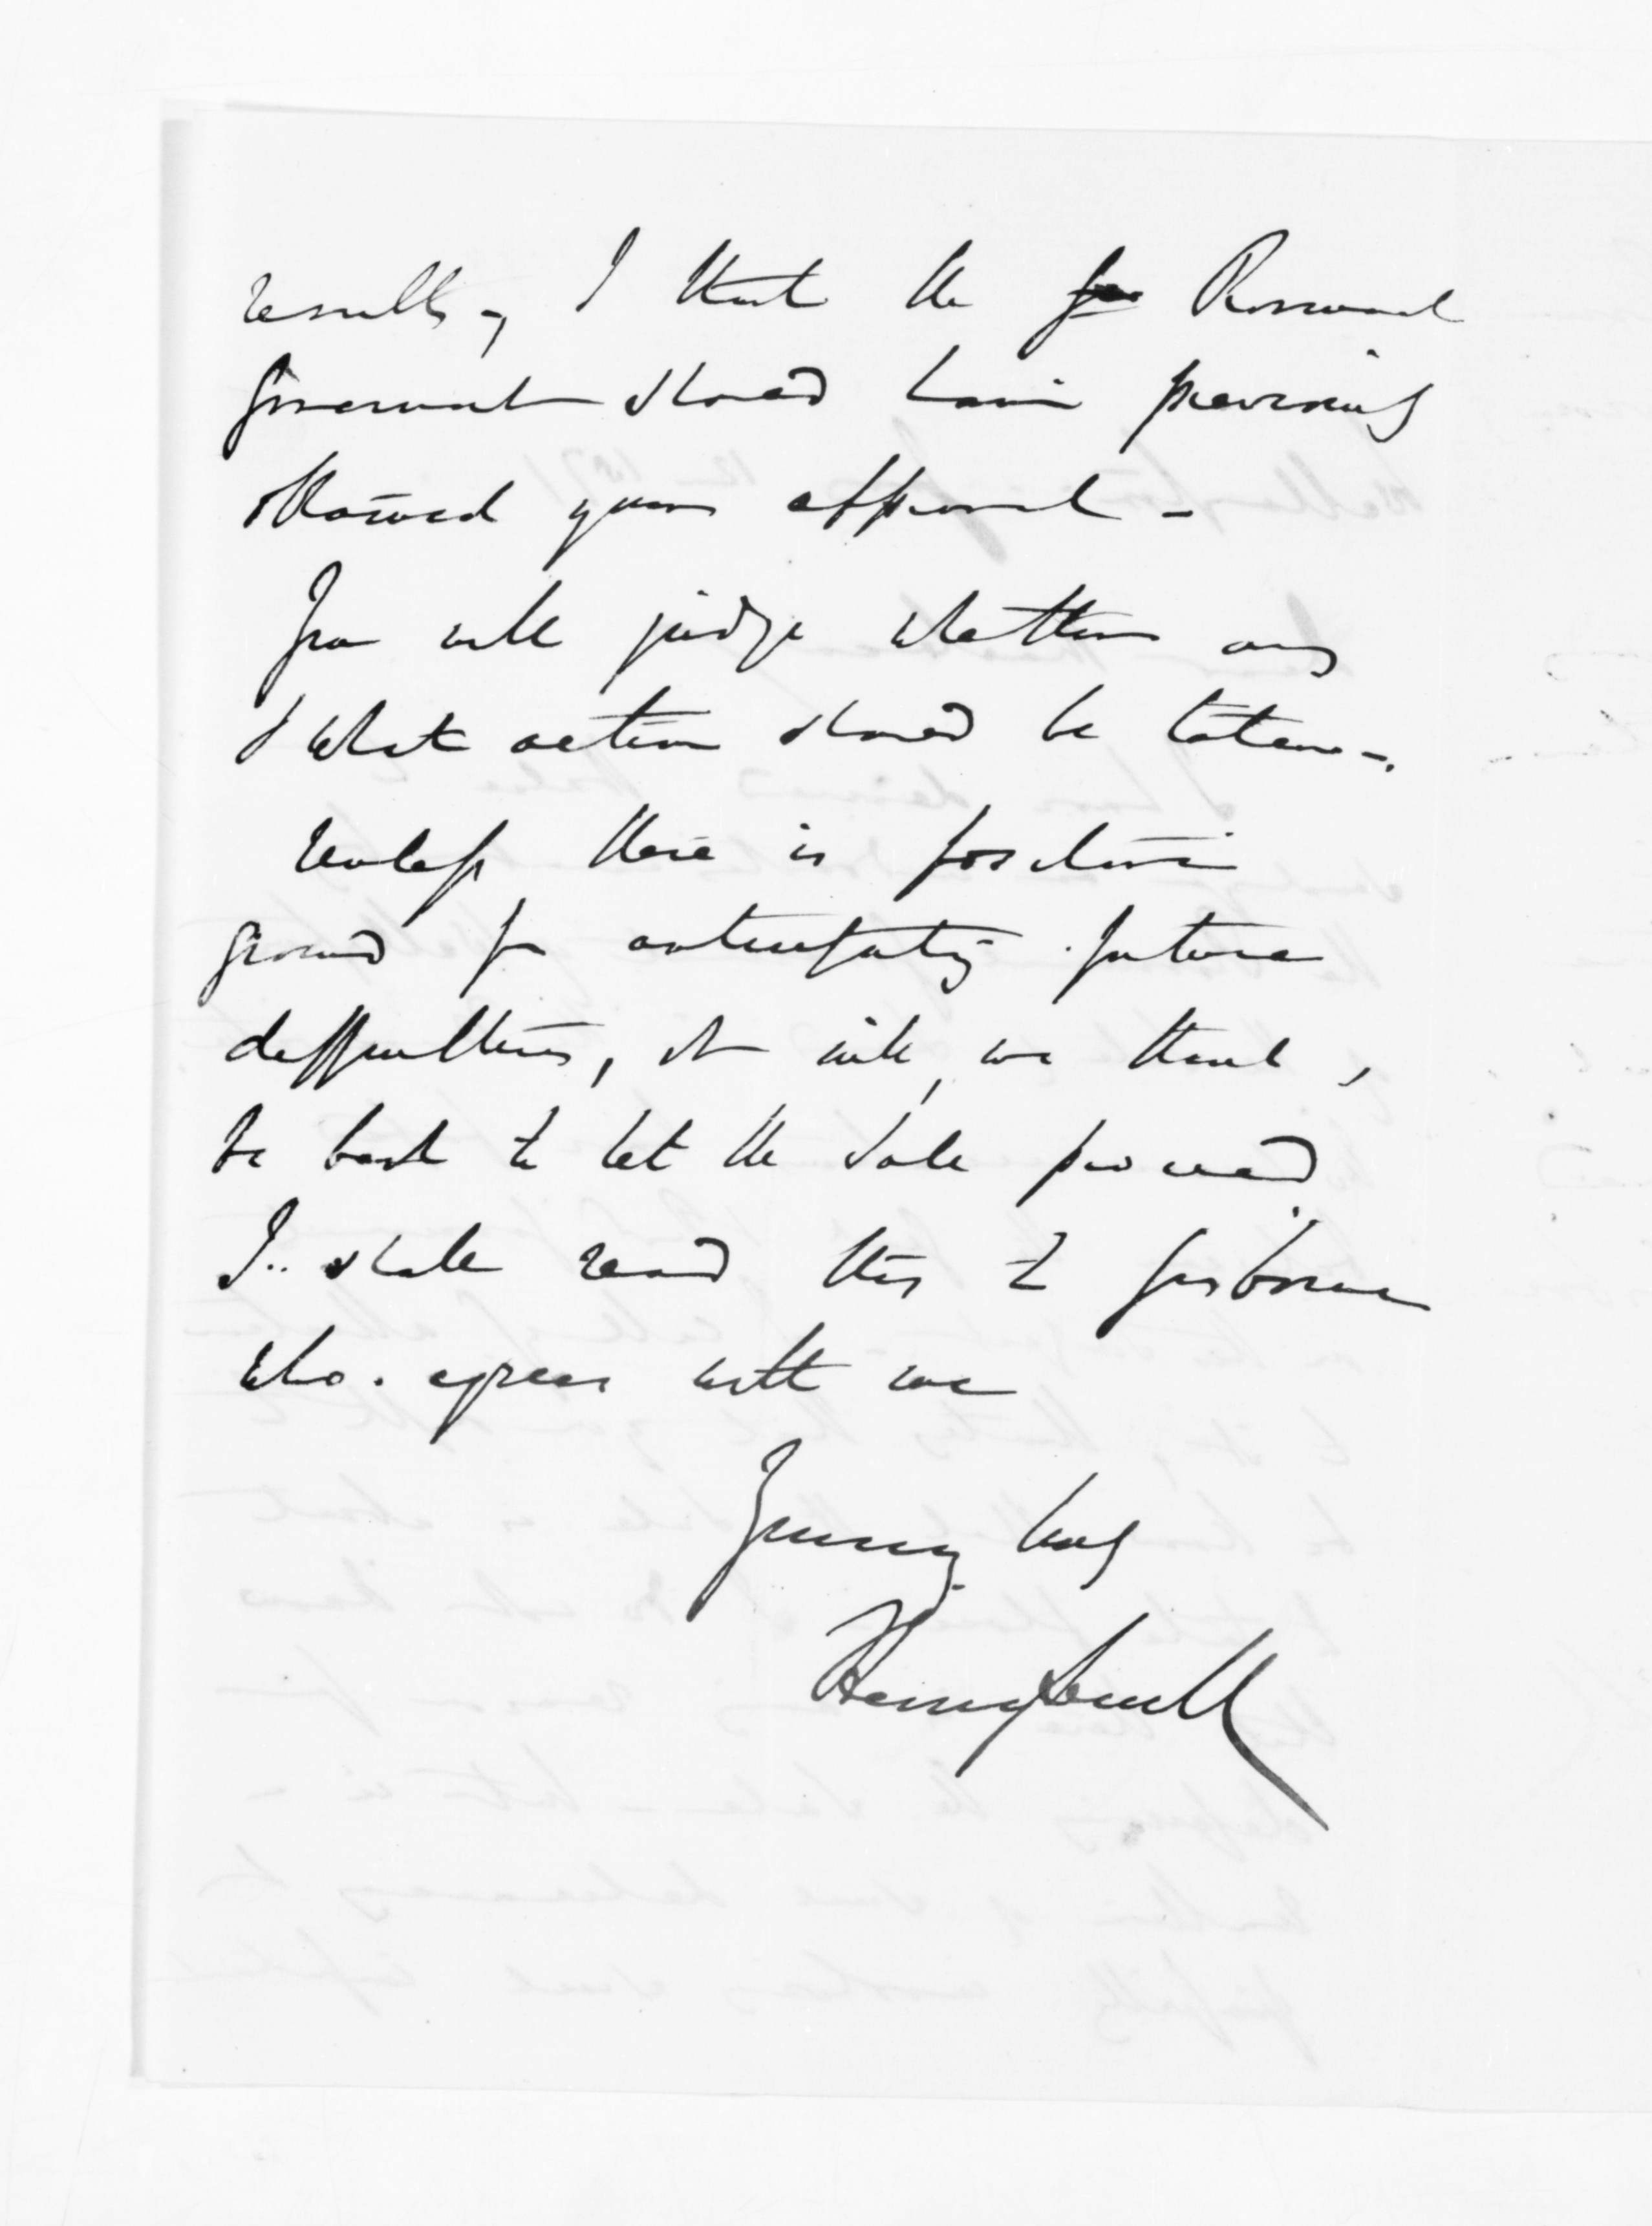 results, I think the Provincial
Government should have previously
obtained your approval -
You will judge whether any
& what action should be taken -.
Unless there is positive
ground for anticipating future
difficulties, it will, we think,
be best to let the sale proceed
I shall read this to Gisborne
who agrees with me
Yours truly
Henry Sewell